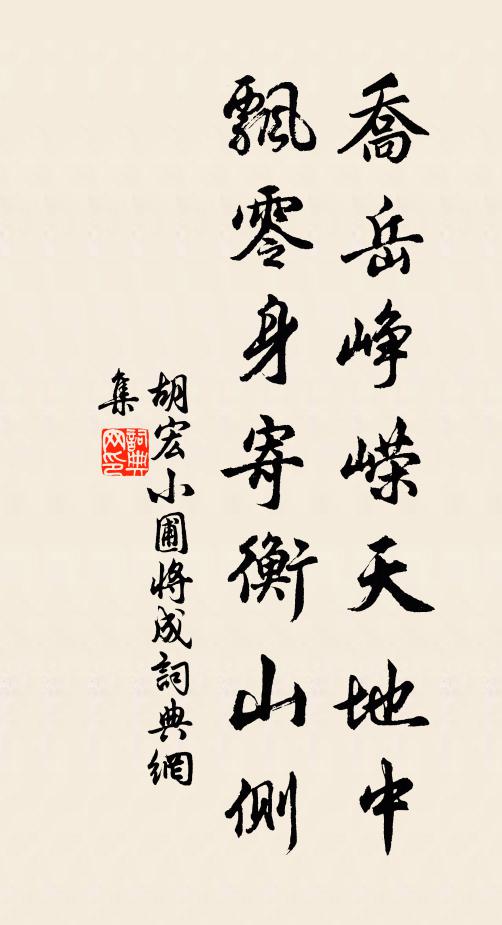 喬岳峥嶸天地中
飄零身寄衡山側
胡宏小圃將成詞典網
集
詞典
网印